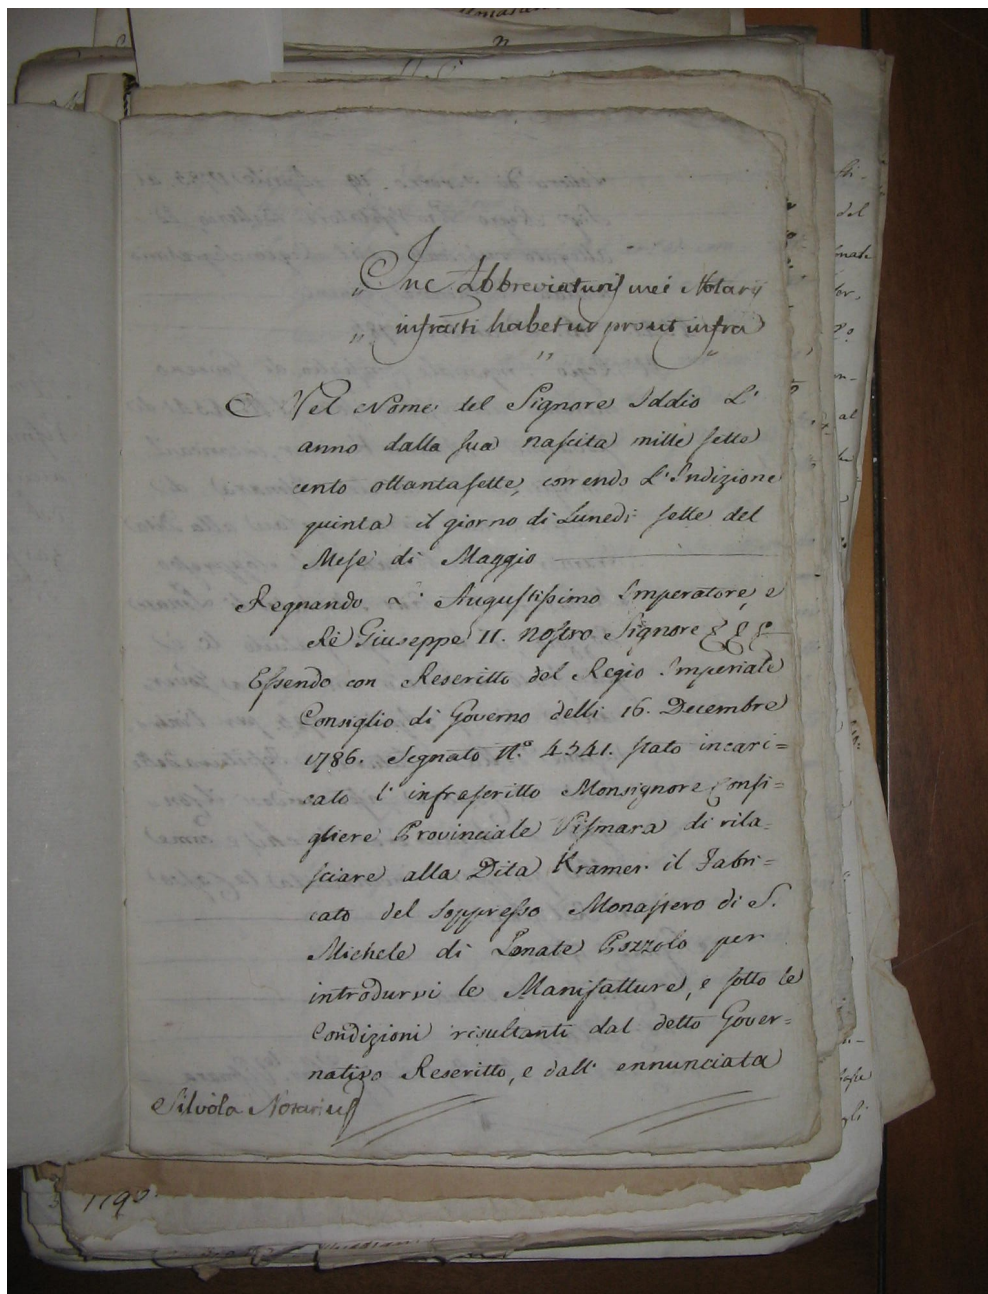 „ Inc Abbreviaturis mei Notarij
„ infra(ti habetur prout infra
„ „
Nel Nome del Signore Iddio L'
anno dalla sua nascita mille sette
cento ottantasette, correndo L'Indizione
quinta il giorno di Lunedi sette del
Mese di Maggio
Regnando L'Augustissimo Imperatore, e
Rè Giuseppe II. nostro Signore
Essendo con Rescritto del Regio Imperiale
Consiglio di Governo delli 16. Decembre
1786. Segnato N.º 4341. stato incari=
cato l'infrascritto Monsignore Consi=
gliere Provinciale Vismara di rila=
sciare alla Dita Kramer il Fabri=
cato del soppresso Monastero di S.
Michele di Lonate Pozzolo per
introdurvi le Manifatture, e sotto le
Condizioni risultanti dal detto Gover=
nativo Rescritto, e dall'ennunciata
Silvola Notarius
1790.